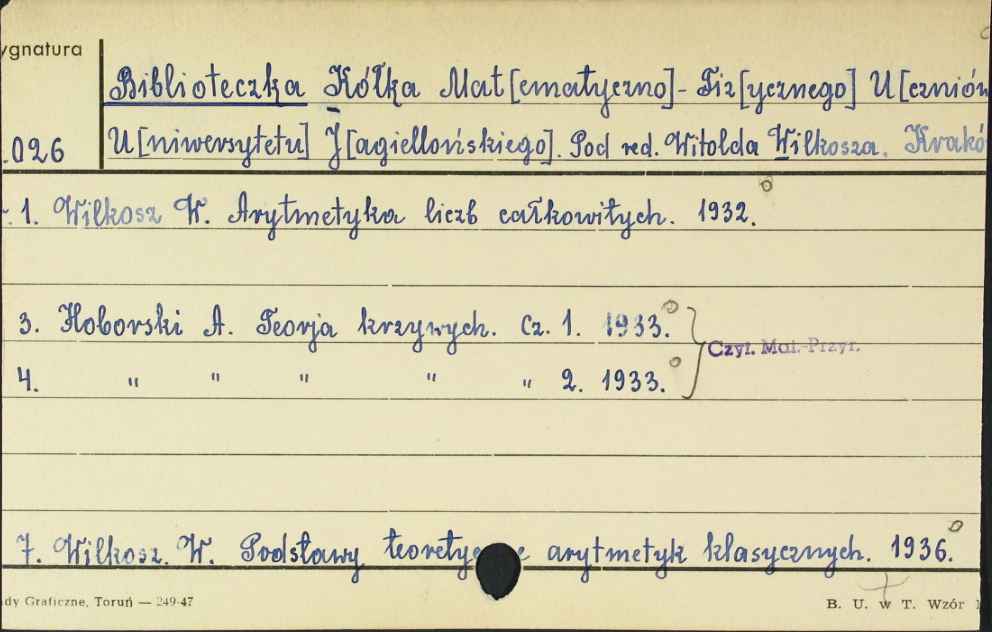 ygnatura
Biblioteczka Kółka Mat[ematyczno]-Fiz[ycznego] U[czniów
.026 U[niwersytetu] J[agiellońskiego]. Pod red. Witolda Wilkosza. Krakó
1. Wilkosz W. Arytmetyka liczb całkowitych. 1932.
3. Hoborski A. Teorja krzywych. Cz. 1. 1933.
Czyt. Mat.-Przyr.
4. " " " " " 2. 1933.
7. Wilkosz. W. Podstawy teoretyc e arytmetyk klasycznych. 1936.
dy Graficzne, Toruń — 249-47 B. U. w T. Wzór